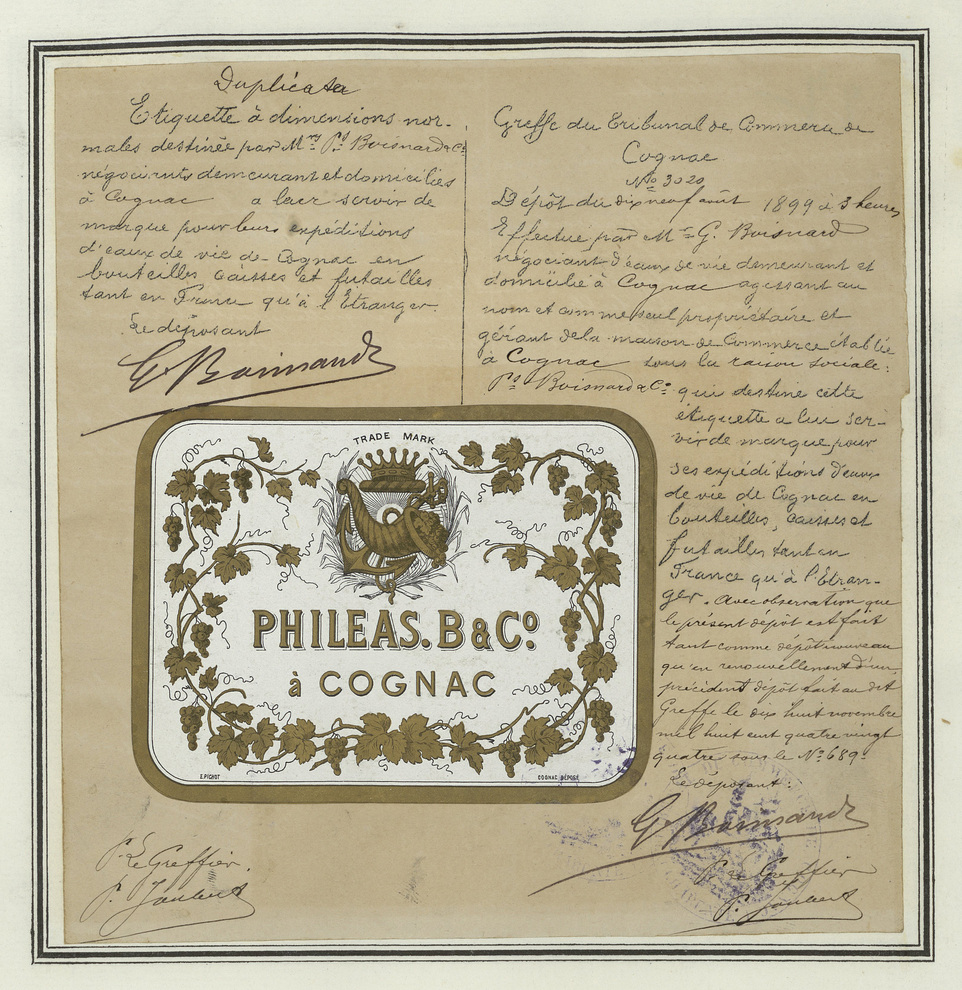 Duplicata
Etiquette à dimensions nor-
males destinée par Mrs Ps Boisnard & Co
négociants demeurant et domiciliés
à Cognac a leur servir de
marque pour leurs expéditions
d'eaux de vie de Cognac en
bouteilles caisses et futailles
tant en France qu'à l'Etranger
Le déposant
G. Boisnard
Greffe du Tribunal de Commerce de
Cognac
No 3020
Dépôt du dix neuf août 1899 à 3 heures
Effectué par Mr G. Boisnard
négociant d'eaux de vie demeurant et
domicilié à Cognac agissant au
nom et comme seul propriétaire et
gérant de la maison de Commerce établie
à Cognac sous la raison sociale:
Ps Boisnard & Co qui destine cette
étiquette a lui ser-
vir de marque pour
ses expéditions d'eaux
de vie de Cognac en
bouteilles, caisses et
futailles tant en
France qu'à l'Etran-
ger. Avec observation que
le présent dépôt est fait
tant comme dépôt nouveau
qu'en renouvellement d'un
précédent dépôt fait au dit
Greffe le dix huit novembre
mil huit cent quatre vingt
quatre sous le No 689.
Le déposant:
G. Boisnard
TRADE MARK
PHILEAS. B & Co
à COGNAC
E. PICHOT
COGNAC DÉPOSÉ
P. Le Greffier
P. Joubert
P. Le Greffier
P. Joubert